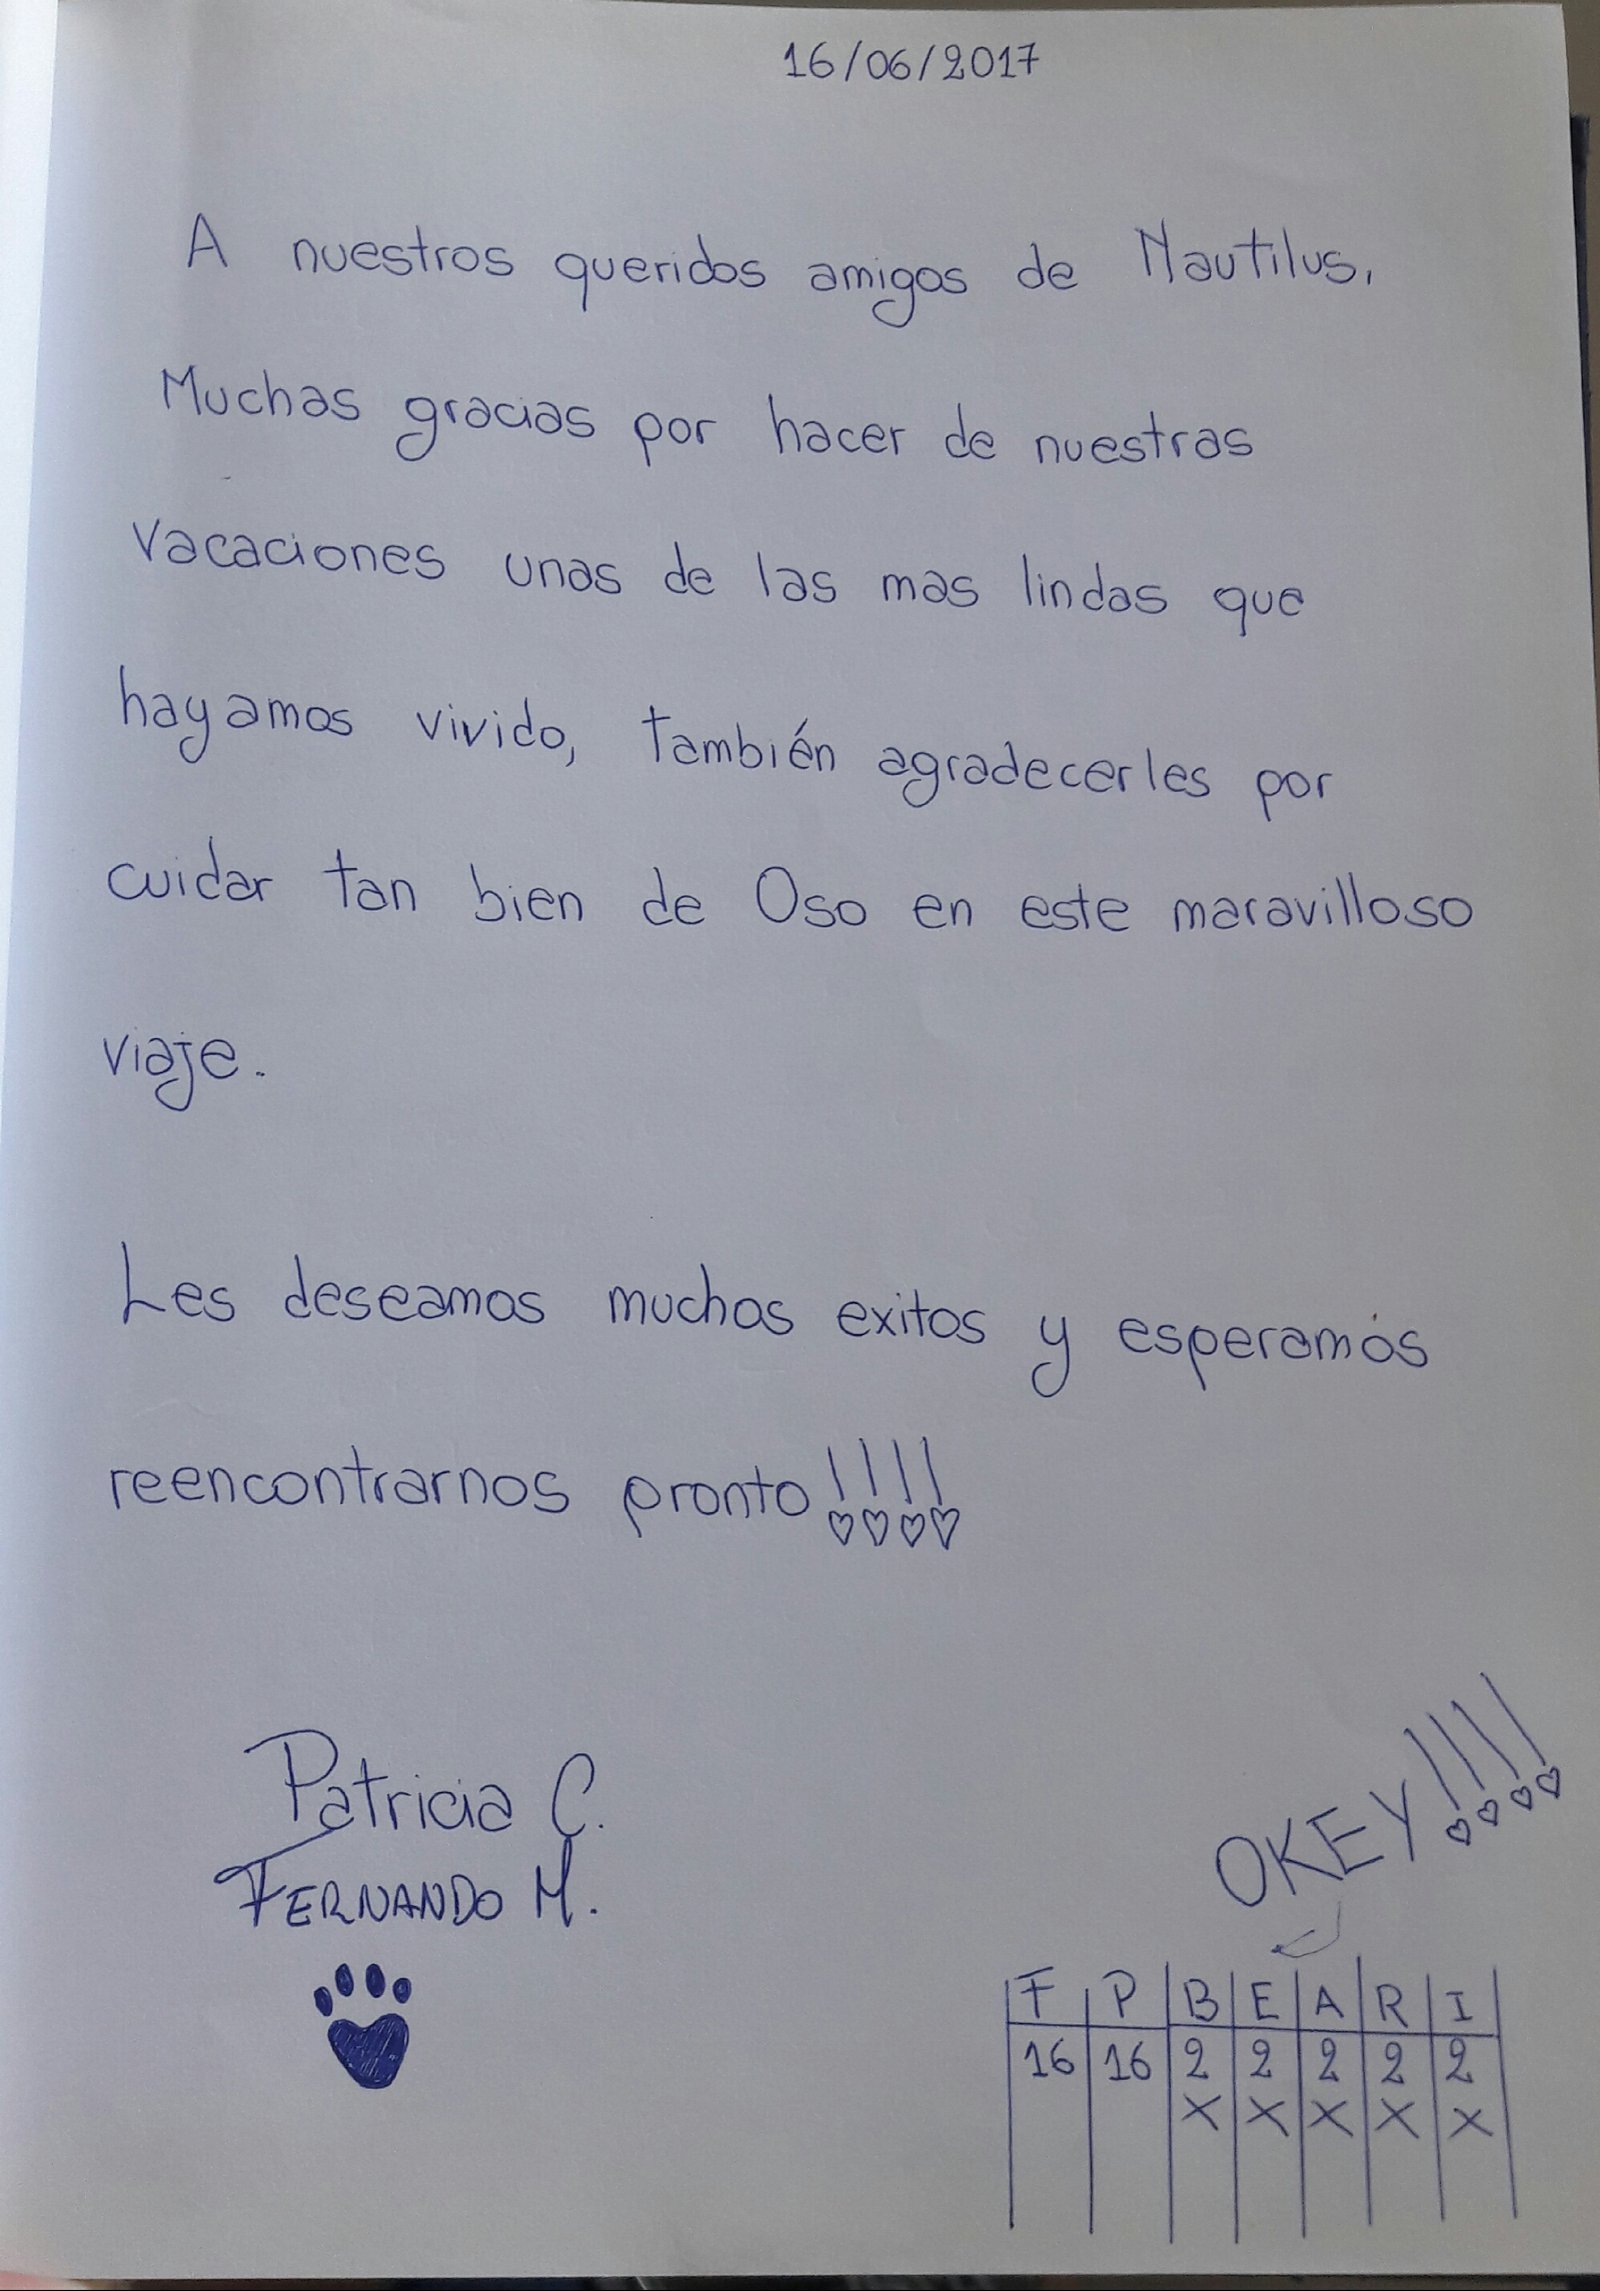 16/06/2017
A nuestros queridos amigos de Nautilus,
Muchas gracias por hacer de nuestras
vacaciones unas de las mas lindas que
hayamos vivido, también agradecerles por
cuidar tan bien de Oso en este maravilloso
viaje.
Les deseamos muchos exitos y esperamos
reencontrarnos pronto!!!!
Patricia C.
FERNANDO M.
OKEY!!!!
F P B E A R I
16 16 2 2 2 2 2
X X X X X